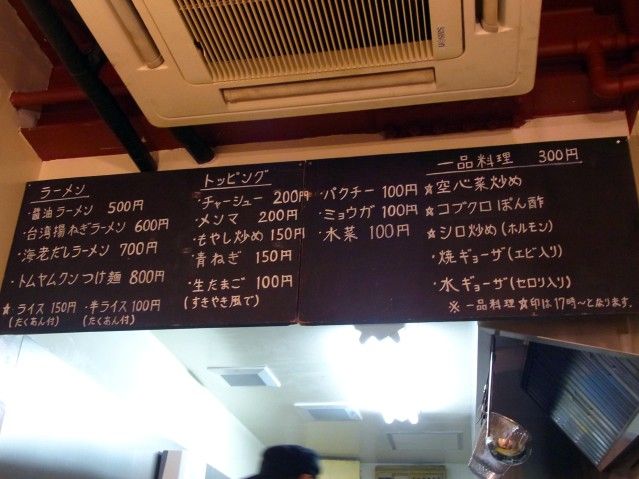 ラーメン
・醤油ラーメン 500円
・台湾揚ねぎラーメン 600円
・海老だしラーメン 700円
・トムヤムクンつけ麺 800円
☆ライス 150円 ・半ライス 100円
(たくあん付) (たくあん付)
トッピング
・チャーシュー 200円
・メンマ 200円
・もやし炒め 150円
・青ねぎ 150円
・生たまご 100円
(すきやき風で)
・パクチー 100円
・ミョウガ 100円
・水菜 100円
一品料理 300円
☆空心菜炒め
☆コブクロぽん酢
☆シロ炒め(ホルモン)
・焼ギョーザ(エビ入り)
・水ギョーザ(セロリ入り)
※一品料理☆印は17時〜となります。